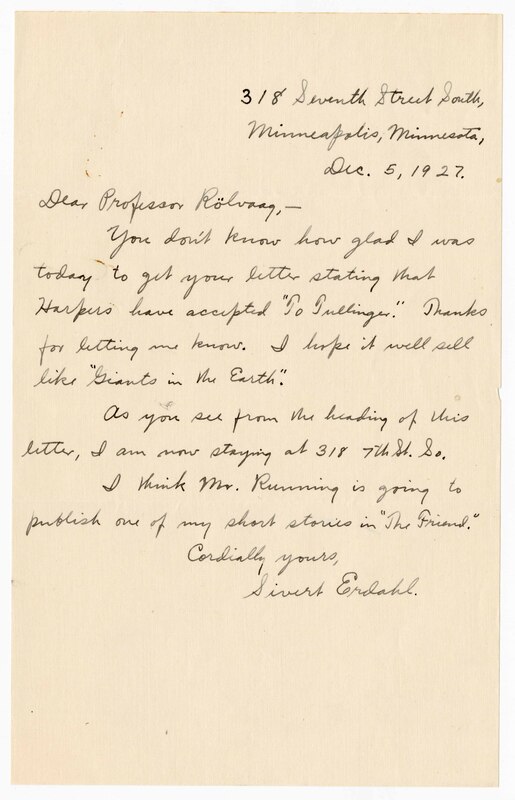 318 Seventh Street South,
Minneapolis, Minnesota,
Dec. 5, 1927.
Dear Professor Rölvaag,—
You don't know how glad I was
today to get your letter stating that
Harpers have accepted "To Tullinger." Thanks
for letting me know. I hope it will sell
like "Giants in the Earth".
As you see from the heading of this
letter, I am now staying at 318 7th St. So.
I think Mr. Running is going to
publish one of my short stories in "The Friend."
Cordially yours,
Sivert Erdahl.